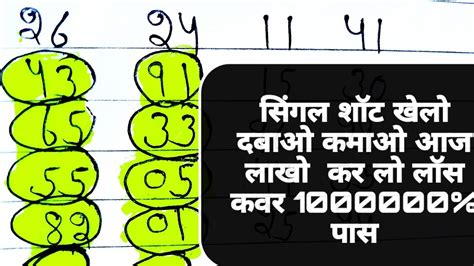 26 24 11 41
43 91
65 33
55 05
82
सिंगल शॉट खेलो
दबाओ कमाओ आज
लाखो कर लो लॉस
कवर 1000000%
पास